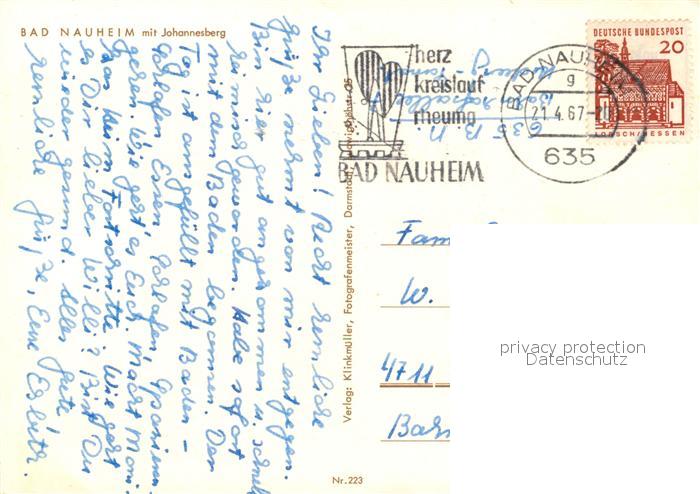 BAD NAUHEIM mit Johannesberg
Ihr Lieben! Recht herzliche
Grüße nehmt von mir entgegen.
Bin hier gut angekommen u. schnell
heimisch geworden. Habe sofort
mit dem Baden begonnen. Der
Tag ist ausgefüllt mit Baden -
schlafen Essen schlafen, Spazieren
gehen. Wie geht's Euch. Macht Moni
das Heim Fortschritte. Wie geht
es Dir lieber Willi? Bist Du
wieder gesund. Alles gute
herzliche Grüße, Eure
Verlag: Klinkmüller, Fotografenmeister, Darmstadt
Nr. 223
herz
kreislauf
rheuma
BAD NAUHEIM
635 B N
BAD NAUHEIM
g
21.4.67
635
DEUTSCHE BUNDESPOST
20
LORSCH/HESSEN
Fam
W.
4711
privacy protection
Datenschutz